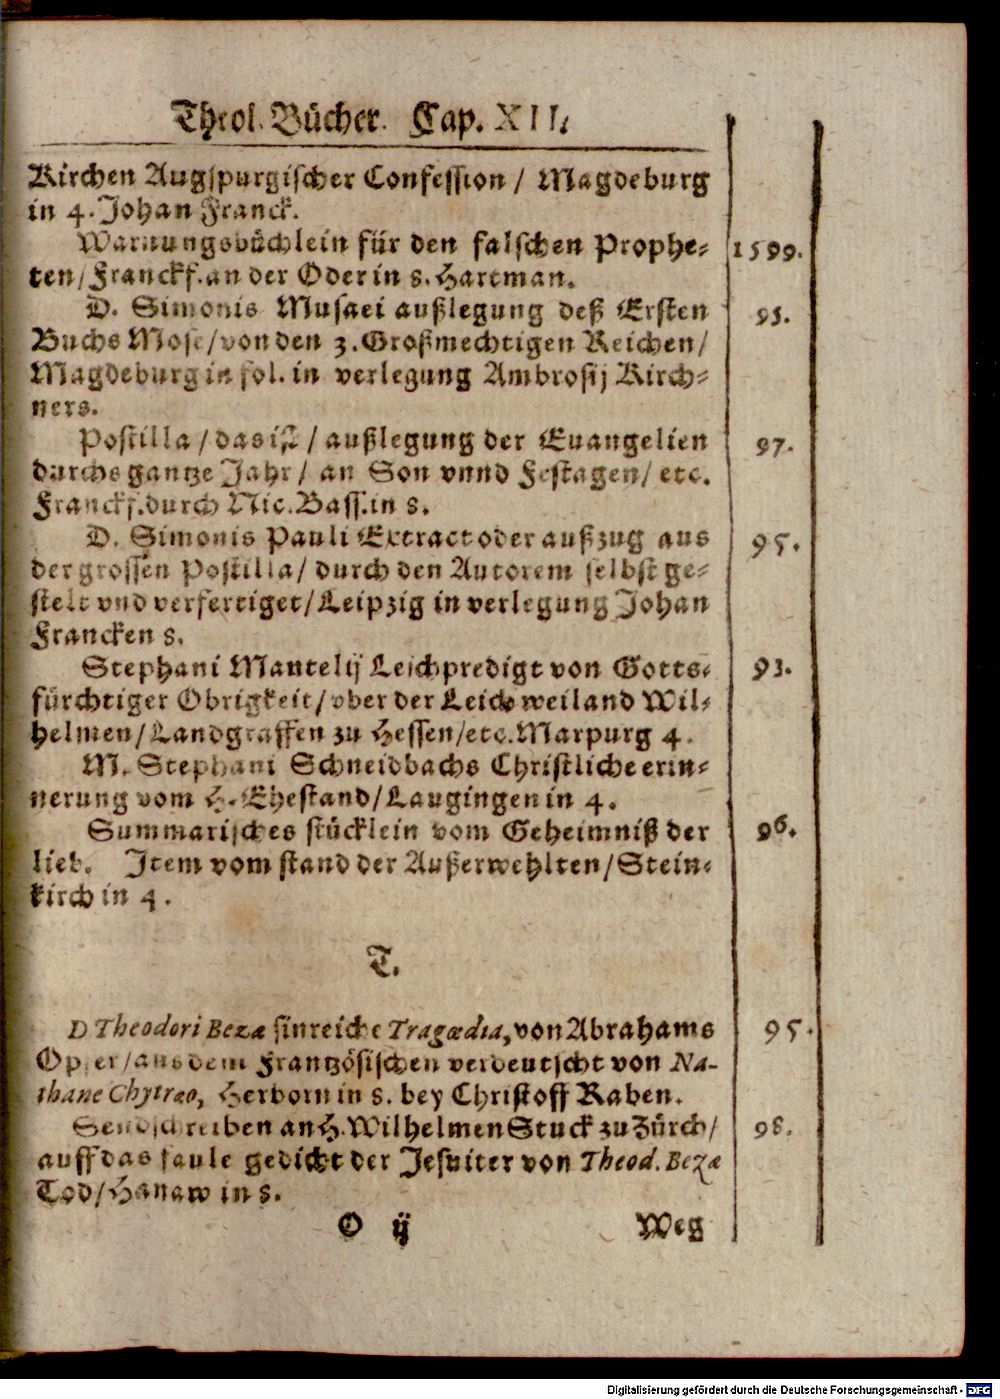 Theol. Bücher. Cap. XII.
Kirchen Augspurgischer Confession / Magdeburg
in 4. Johan Franck.
Warnungsbüchlein für den falschen Prophe- 1599.
ten/Franckf. an der Oder in 8. Hartman.
D. Simonis Musaei außlegung deß Ersten 95.
Buchs Mose/von den 3. Großmechtigen Reichen/
Magdeburg in fol. in verlegung Ambrosij Kirch-
ners.
Postilla / das ist / außlegung der Euangelien 97.
durchs gantze Jahr / an Son vnnd Festagen/ etc.
Franckf. durch Nic. Bass. in 8.
D. Simonis Pauli Extract oder außzug aus 95.
der grossen Postilla/ durch den Autorem selbst ge-
stelt vnd verfertiget/Leipzig in verlegung Johan
Francken 8.
Stephani Mantelij Leichpredigt von Gotts- 93.
fürchtiger Obrigkeit/vber der Leich weiland Wil-
helmen/Landgraffen zu Hessen/etc. Marpurg 4.
M. Stephani Schneidbachs Christliche erin-
nerung vom H. Ehestand/Laugingen in 4.
Summarisches stücklein vom Geheimniß der 96.
lieb. Item vom stand der Außerwehlten/Stein-
kirch in 4.
T.
D Theodori Bezæ sinreiche Tragœdia, von Abrahams 95.
Opfer/aus dem Frantzösischen verdeutscht von Na-
thane Chytræo, Herborn in 8. bey Christoff Raben.
Sendschreiben an H. Wilhelmen Stuck zu Zürch/ 98.
auff das faule gedicht der Jesuiter von Theod. Bezæ
Tod/Hanaw in 8.
O ij Weg
Digitalisierung gefördert durch die Deutsche Forschungsgemeinschaft - DFG